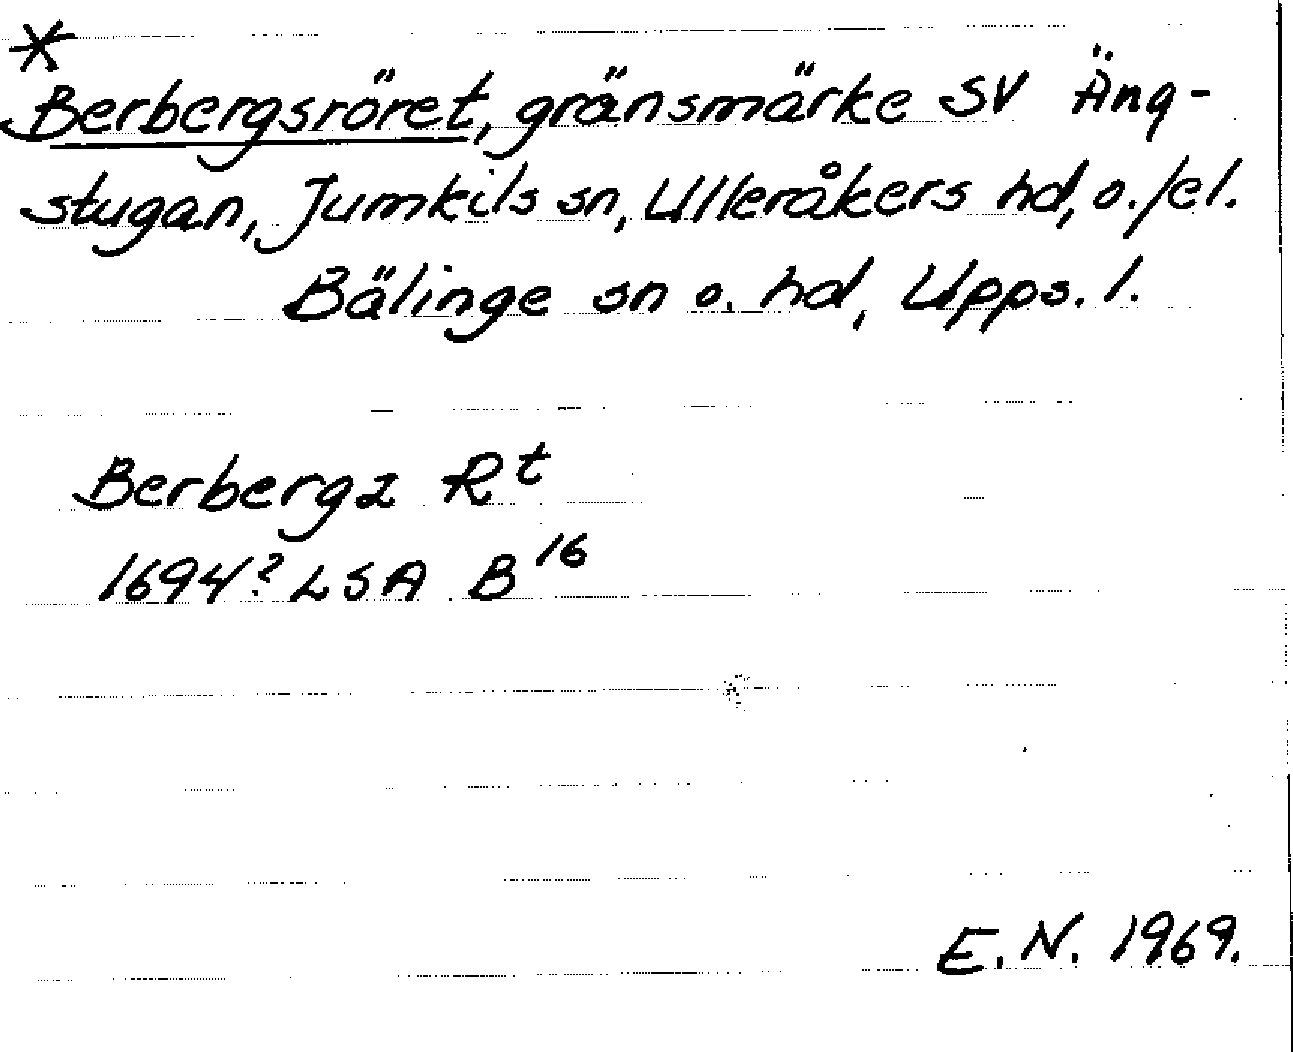 *
Berbergsröret, gränsmärke SV Äng-
stugan, Jumkils sn, Ulleråkers hd, o./el.
Bälinge sn o. hd, Upps. l.
Berbergz R^t
1694? LSA B^16
E.N. 1969.